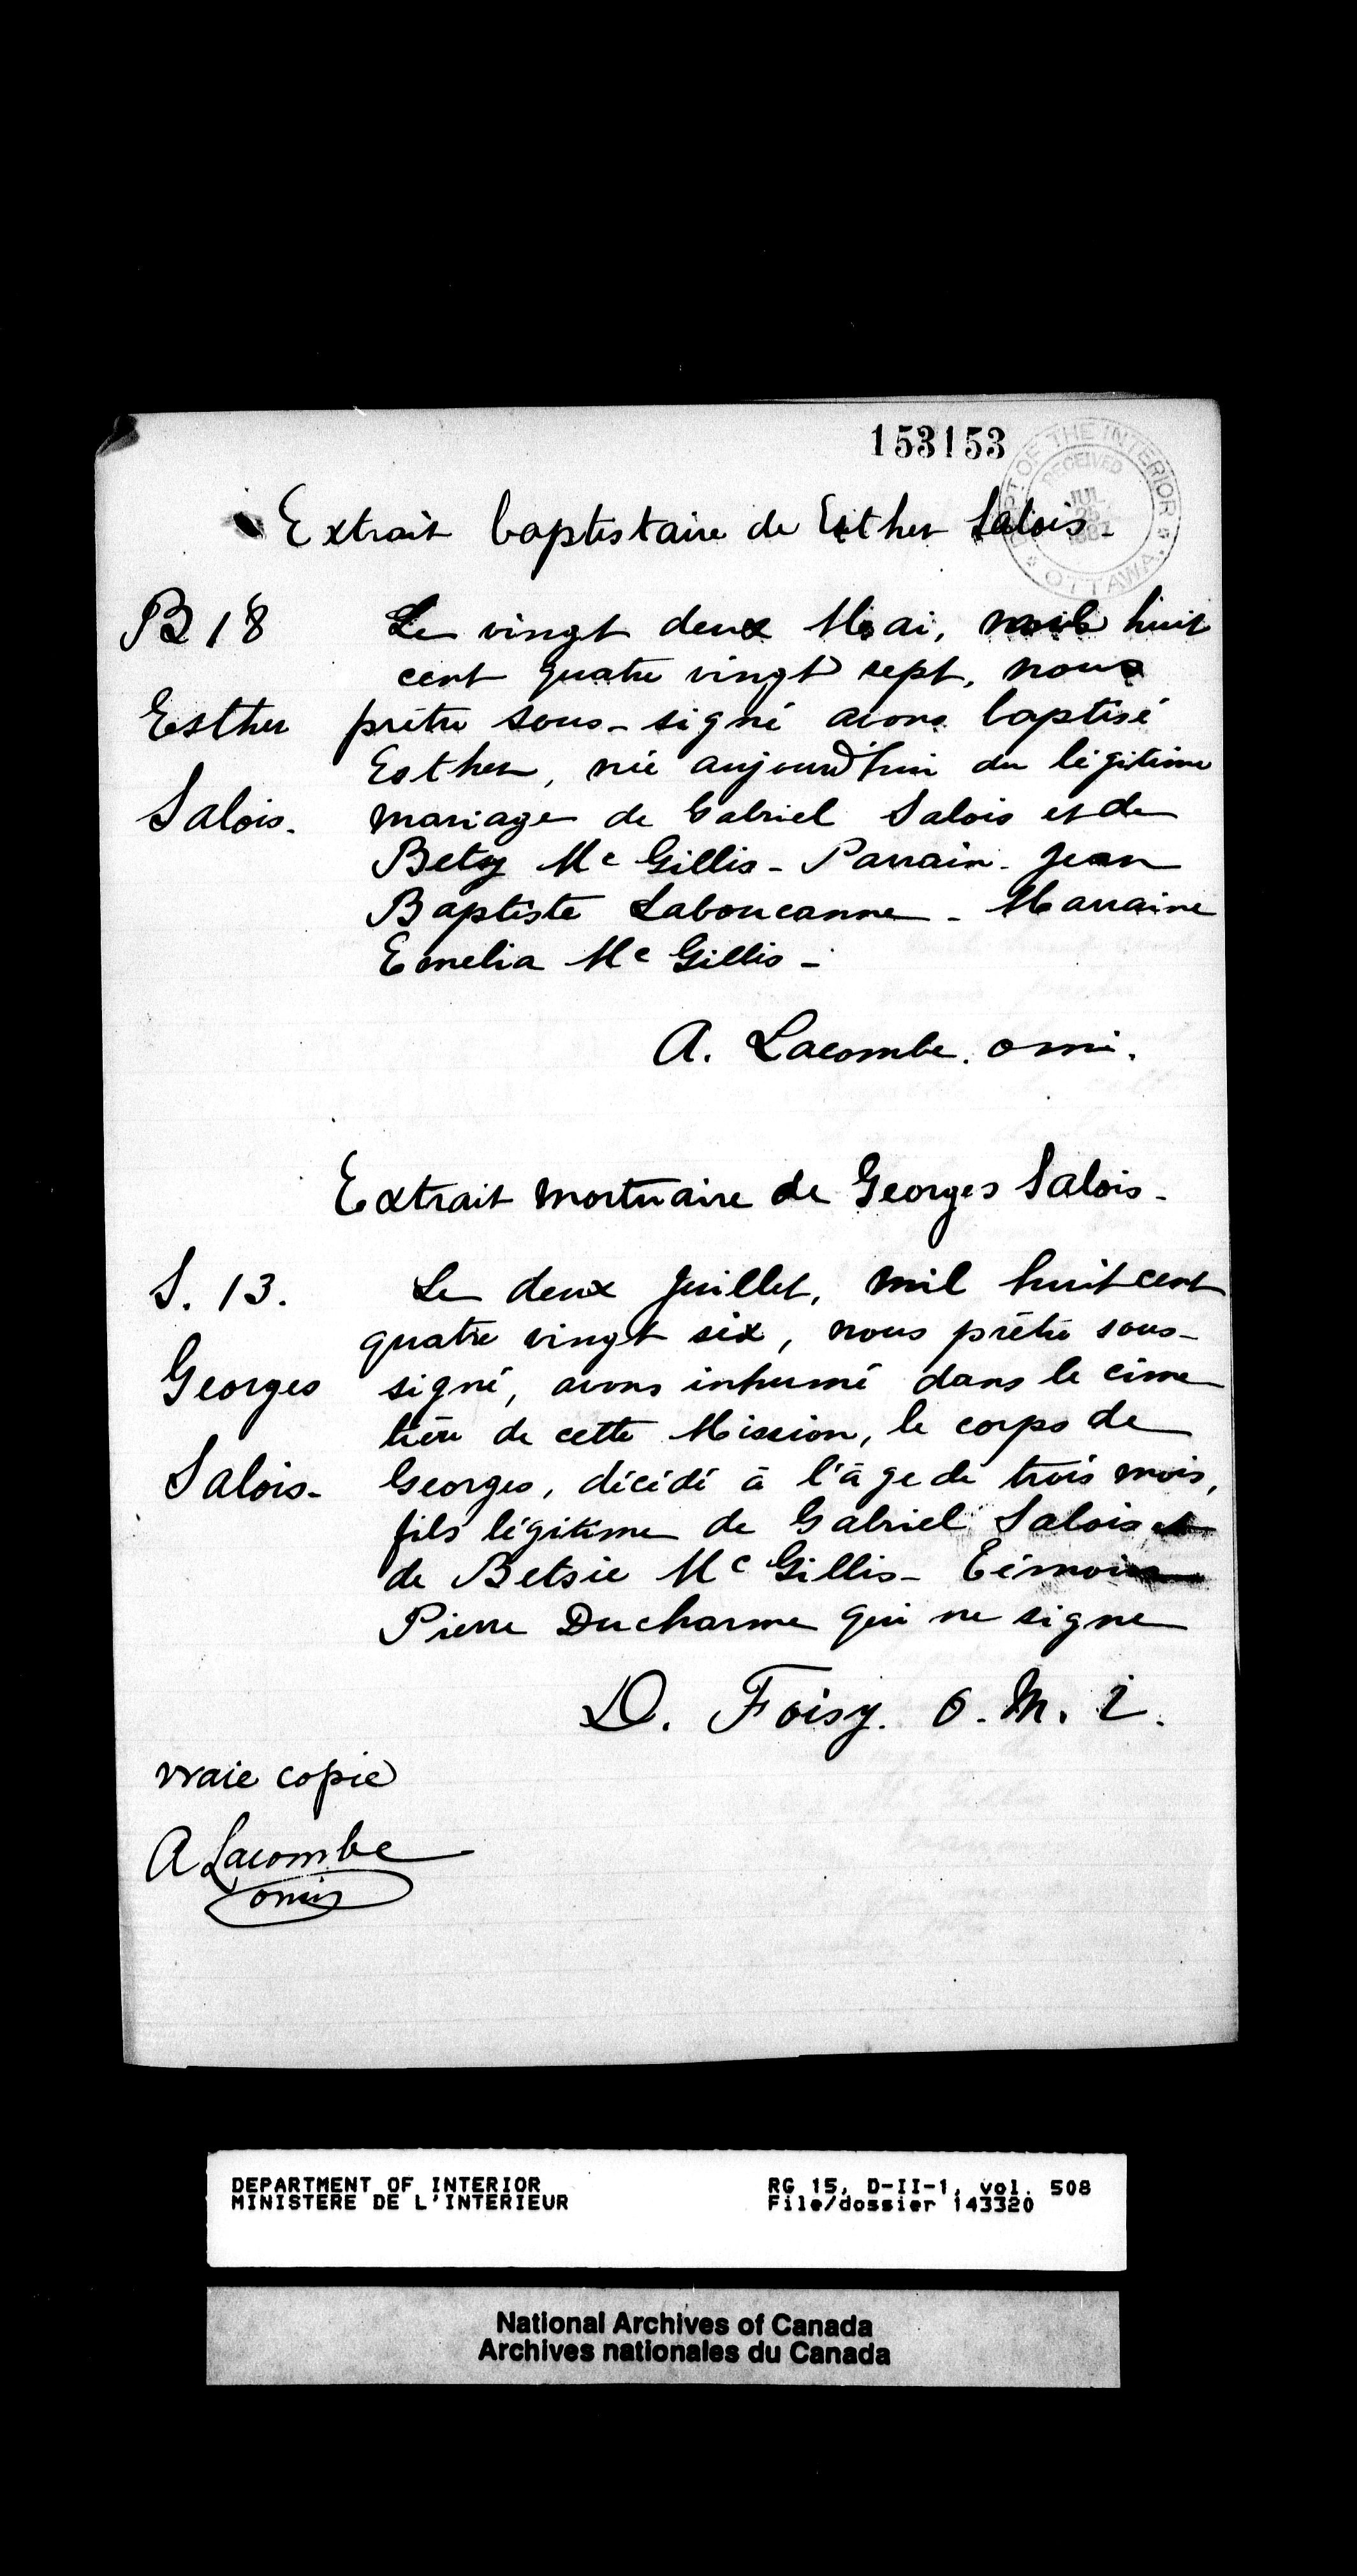 153153
DEPT OF THE INTERIOR
RECEIVED
JUL
OTTAWA
Extrait baptistaire de Esther Salois -
B 18
Le vingt deux Mai, mil huit
cent quatre vingt sept, nous
Esther
prêtre sous-signé avons baptisé
Esther, née aujourd'hui du légitime
Salois.
mariage de Gabriel Salois et de
Betsy Mc Gillis - Parrain - Jean
Baptiste Laboucanne - Marraine
Emelia Mc Gillis -
A. Lacombe. omi.
Extrait mortuaire de Georges Salois -
S. 13.
Le deux Juillet, mil huit cent
quatre vingt six, nous prêtre sous-
Georges
signé, avons inhumé dans le cime
tière de cette Mission, le corps de
Salois -
Georges, décédé à l'âge de trois mois,
fils légitime de Gabriel Salois et
de Betsie Mc Gillis - Témoin
Pierre Ducharme qui ne signe
D. Foisy. O. M. I.
vraie copie
A Lacombe
omi
DEPARTMENT OF INTERIOR
MINISTERE DE L'INTERIEUR
RG 15, D-II-1, vol. 508
File/dossier 143320
National Archives of Canada
Archives nationales du Canada